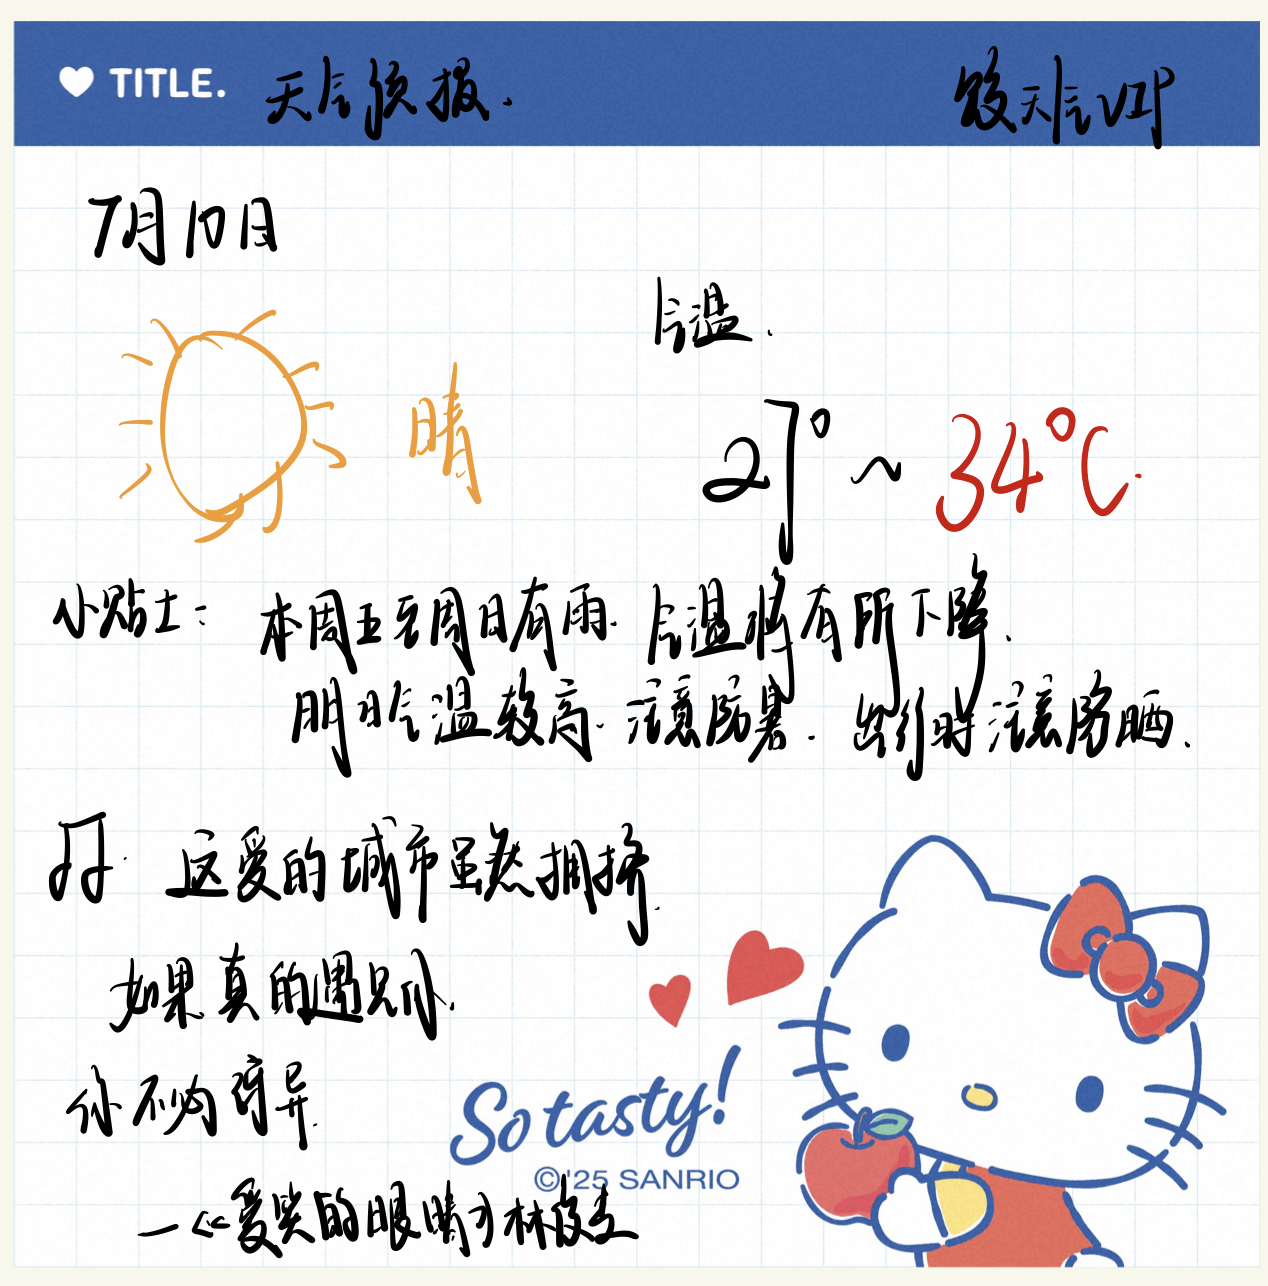 TITLE. 天气预报. 天气VIP
7月10日
气温.
晴
27°~34°C.
小贴士: 本周五至周日有雨. 气温将有所下降.
明日气温较高. 注意防暑. 出行时注意防晒.
这爱的城市虽然拥挤.
如果真的遇见你.
你不必讶异.
So tasty!
©'25 SANRIO
—《爱笑的眼睛》林俊杰